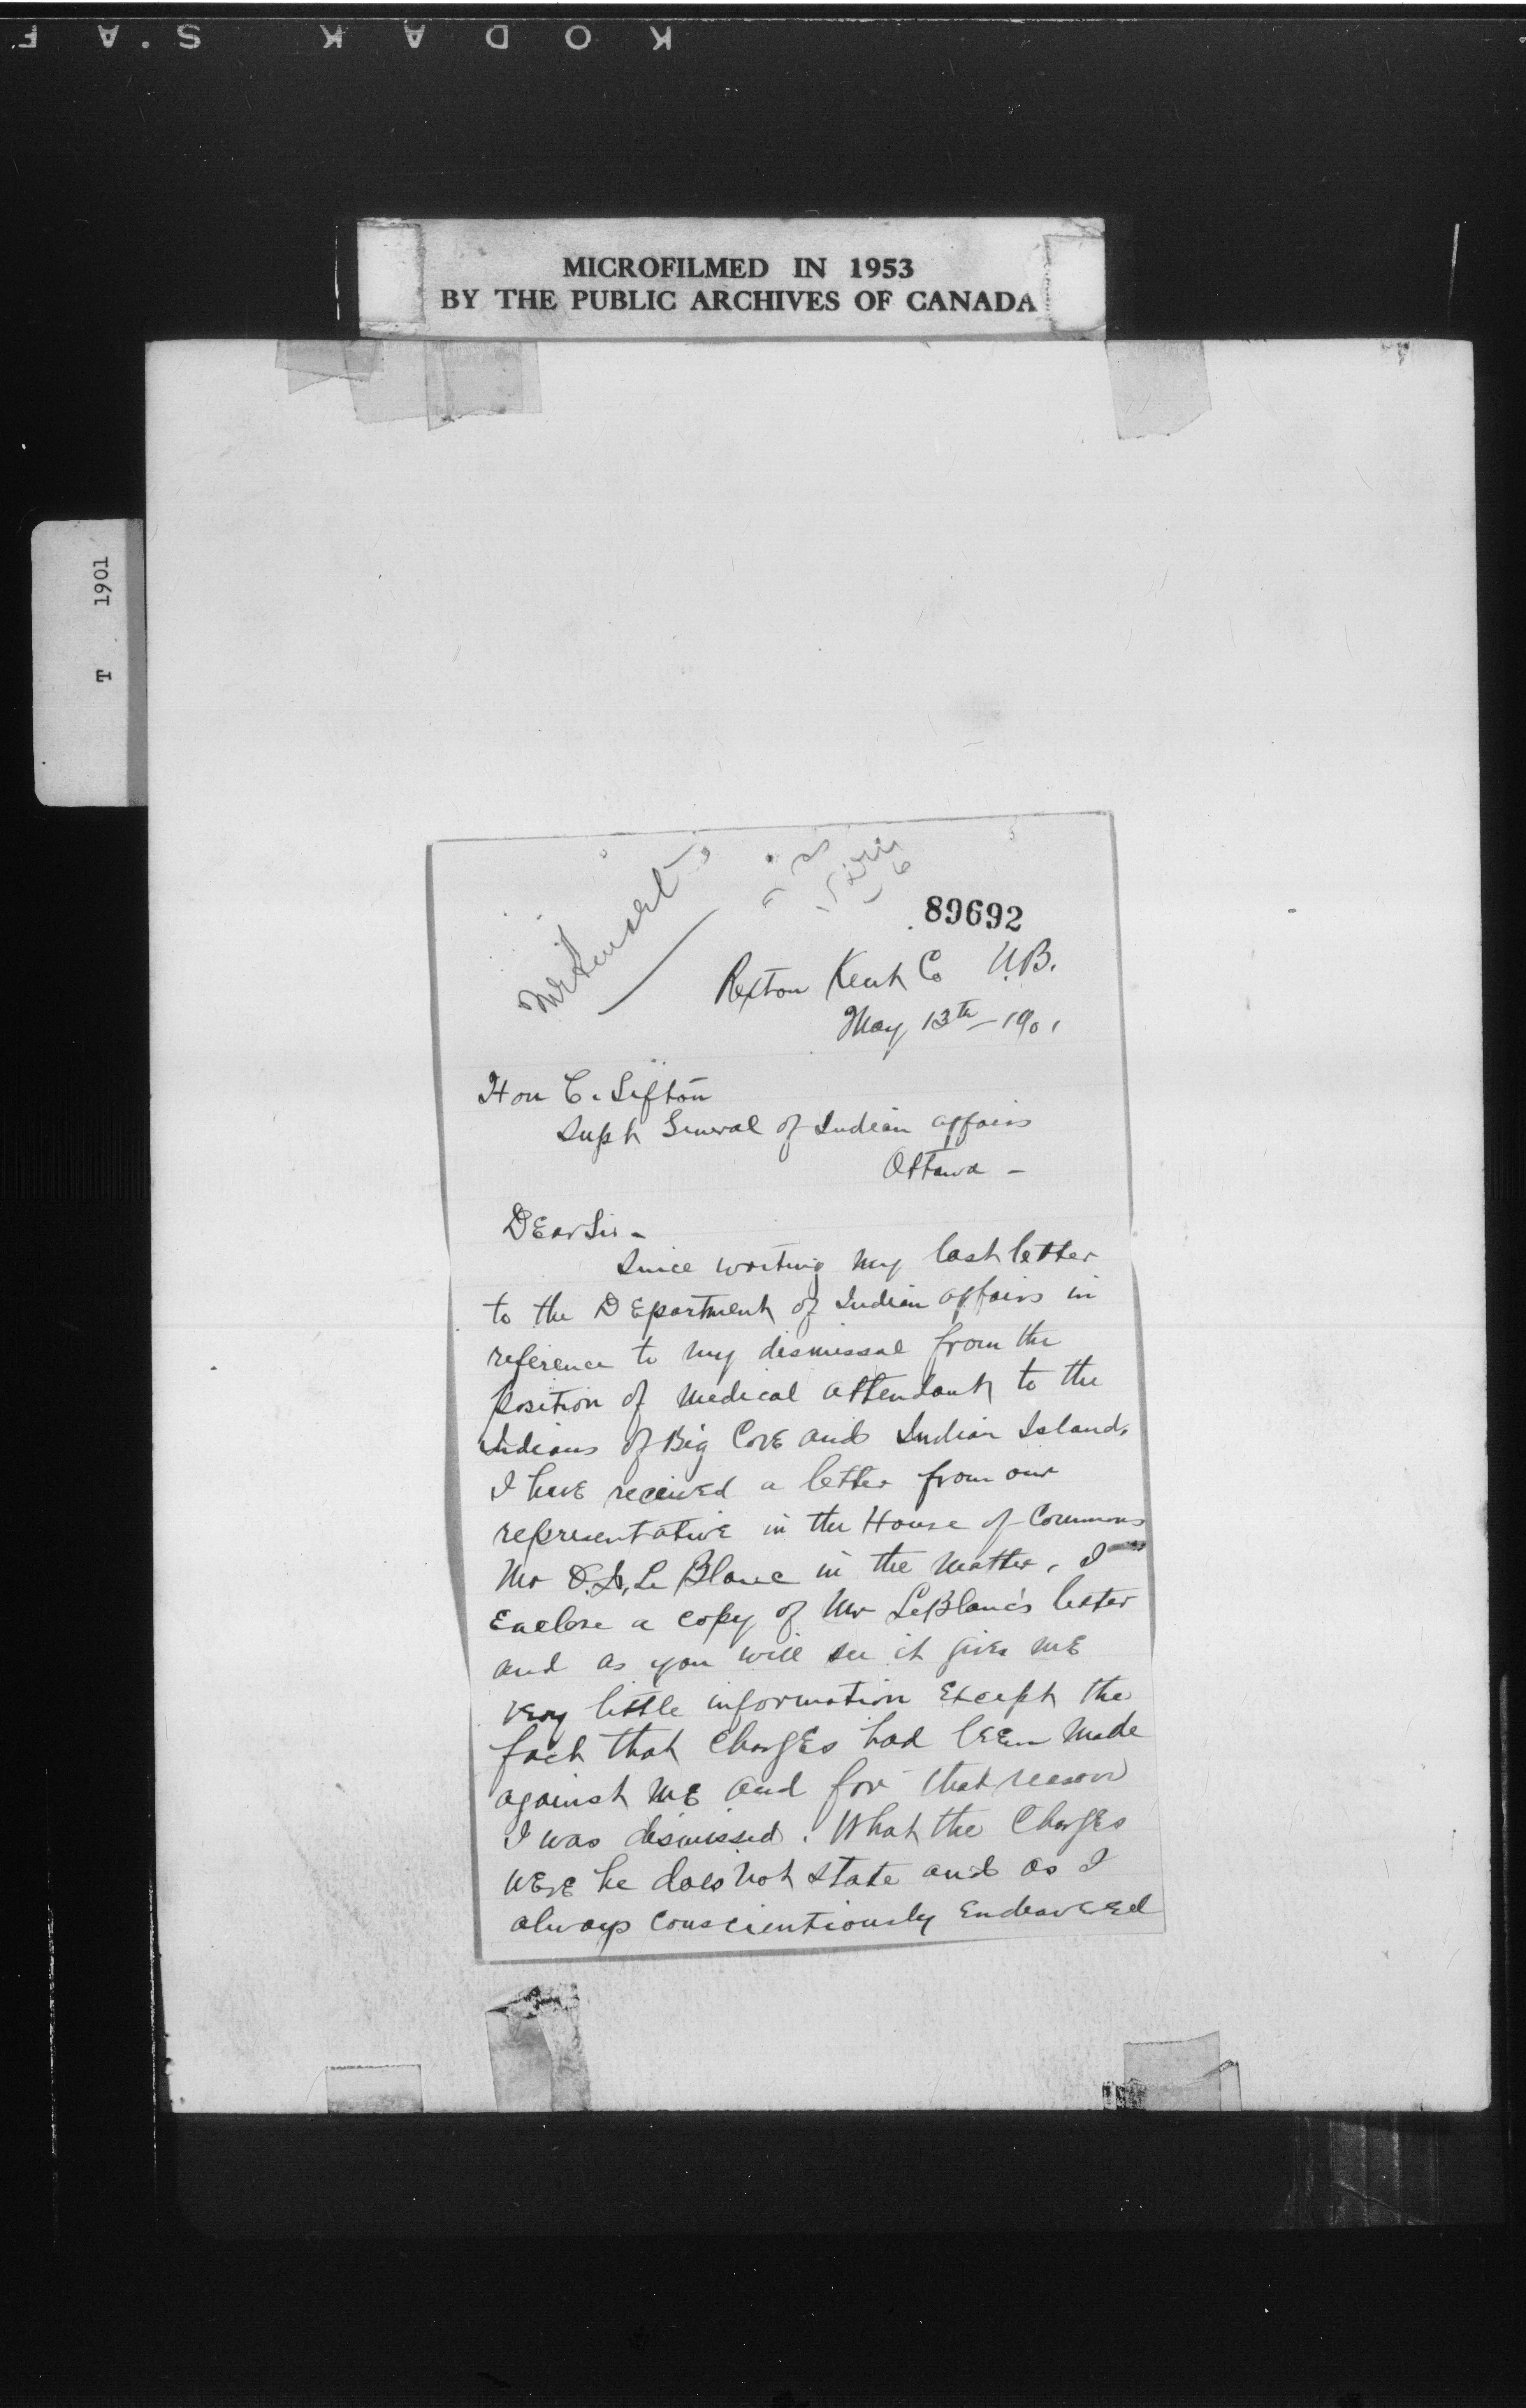 KODAK S.A F
MICROFILMED IN 1953
BY THE PUBLIC ARCHIVES OF CANADA
T 1901
89692
Rexton Kent Co N.B.
May 13th - 1901
Hon C. Sifton
Supt General of Indian affairs
Ottawa -
DEar Sir -
Since writing my last letter
to the DEpartment of Indian affairs in
reference to my dismissal from the
position of Medical attendant to the
Indians of Big CovE and Indian Island,
I havE received a letter from our
representativE in the House of Commons
Mr O. Le Blanc in the Matter, I
Enclose a copy of Mr LeBlanc's letter
and as you will see it gives mE
very little information Except the
fact that ChargEs had bEEn Made
against mE and for that reason
I was dismissed. What the ChargEs
wErE he does not state and as I
always conscientiously EndeavorEd